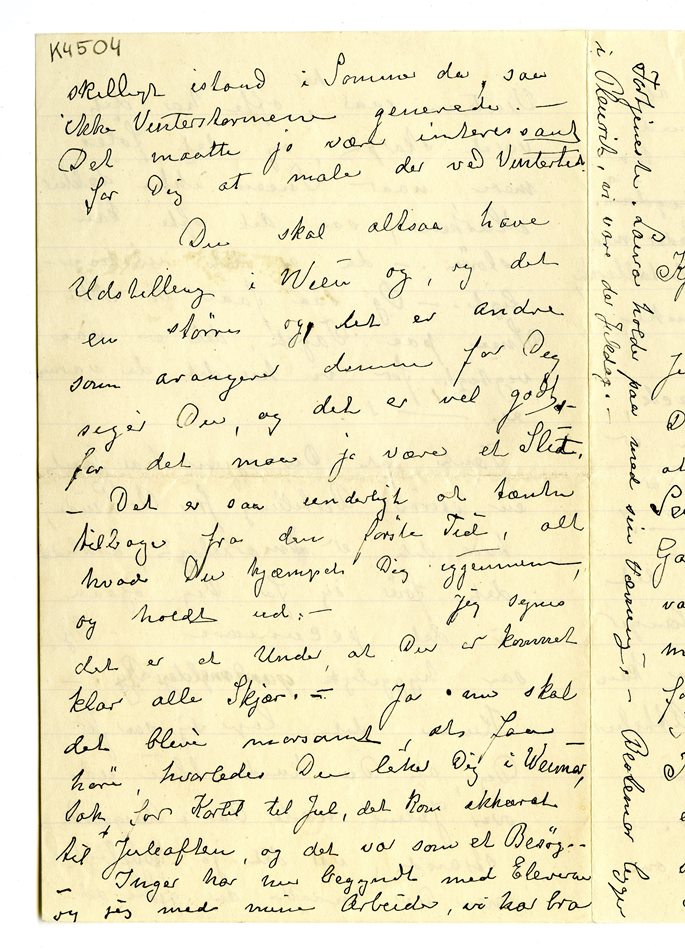 K4504
skilligt istand i Sommer da, saa
ikke Vinterstormene generede. —
Det maatte jo være interessant
for Dig at male der ved Vintertid.
Du skal altsaa have
Udstilling i Wien og, og det
en større og, det er andre
som arangerer denne for Dig
siger Du, og det er vel godt,
for det maa jo være et Slid.
— Det er saa underligt at tænke
tilbage fra den første Tid, alt
hvad Du kjæmpet Dig iggennem,
og holdt ud. — Jeg synes
det er et Under, at Du er kommet
klar alle Skjær. — Ja nu skal
det blive morsomt, at faa
høre, hvorledes Du liker Dig i Weimar,
Tak for Kortet til Jul, det kom akkurat
til Juleaften, og det var som et Besøg. -
— Inger har nu begyndt med Eleverne
og jeg med mine Arbeider, vi har bra
Fortjeneste. Laura holder paa med sin Vævning. — Bestemor ligger
i Pleurit, vi vare der Juledag. —